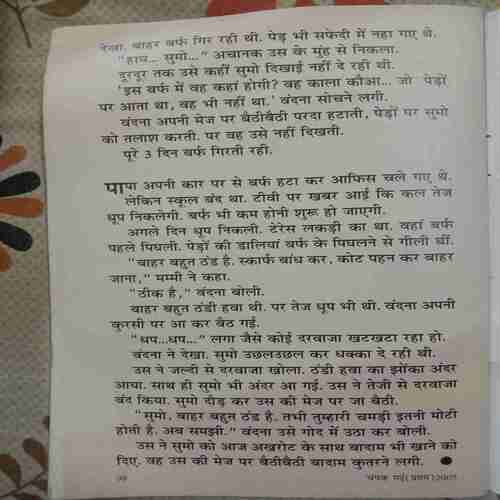 देखा. बाहर बर्फ गिर रही थी. पेड़ भी सफेदी में नहा गए थे.
"हाय... सुमो..." अचानक उस के मुंह से निकला.
दूरदूर तक उसे कहीं सुमो दिखाई नहीं दे रही थी.
'इस बर्फ में वह कहां होगी? वह काला कौआ... जो पेड़ों
पर आता था, वह भी नहीं था.' वंदना सोचने लगी.
वंदना अपनी मेज पर बैठीबैठी परदा हटाती, पेड़ों पर सुमो
को तलाश करती. पर वह उसे नहीं दिखती.
पूरे 3 दिन बर्फ गिरती रही.
पापा अपनी कार पर से बर्फ हटा कर आफिस चले गए थे.
लेकिन स्कूल बंद था. टीवी पर खबर आई कि कल तेज
धूप निकलेगी. बर्फ भी कम होनी शुरू हो जाएगी.
अगले दिन धूप निकली. टेरेस लकड़ी का था. वहां बर्फ
पहले पिघली. पेड़ों की डालियां बर्फ के पिघलने से गीली थीं.
"बाहर बहुत ठंड है. स्कार्फ बांध कर, कोट पहन कर बाहर
जाना," मम्मी ने कहा.
"ठीक है," वंदना बोली.
बाहर बहुत ठंडी हवा थी. पर तेज धूप भी थी. वंदना अपनी
कुरसी पर आ कर बैठ गई.
"धप...धप..." लगा जैसे कोई दरवाजा खटखटा रहा हो.
वंदना ने देखा. सुमो उछलउछल कर धक्का दे रही थी.
उस ने जल्दी से दरवाजा खोला. ठंडी हवा का झोंका अंदर
आया. साथ ही सुमो भी अंदर आ गई. उस ने तेजी से दरवाजा
बंद किया. सुमो दौड़ कर उस की मेज पर जा बैठी.
"सुमो, बाहर बहुत ठंड है. तभी तुम्हारी चमड़ी इतनी मोटी
होती है. अब समझी." वंदना उसे गोद में उठा कर बोली.
उस ने सुमो को आज अखरोट के साथ बादाम भी खाने को
दिए. वह उस की मेज पर बैठीबैठी बादाम कुतरने लगी. ●
चंपक मई (प्रथम) 2007